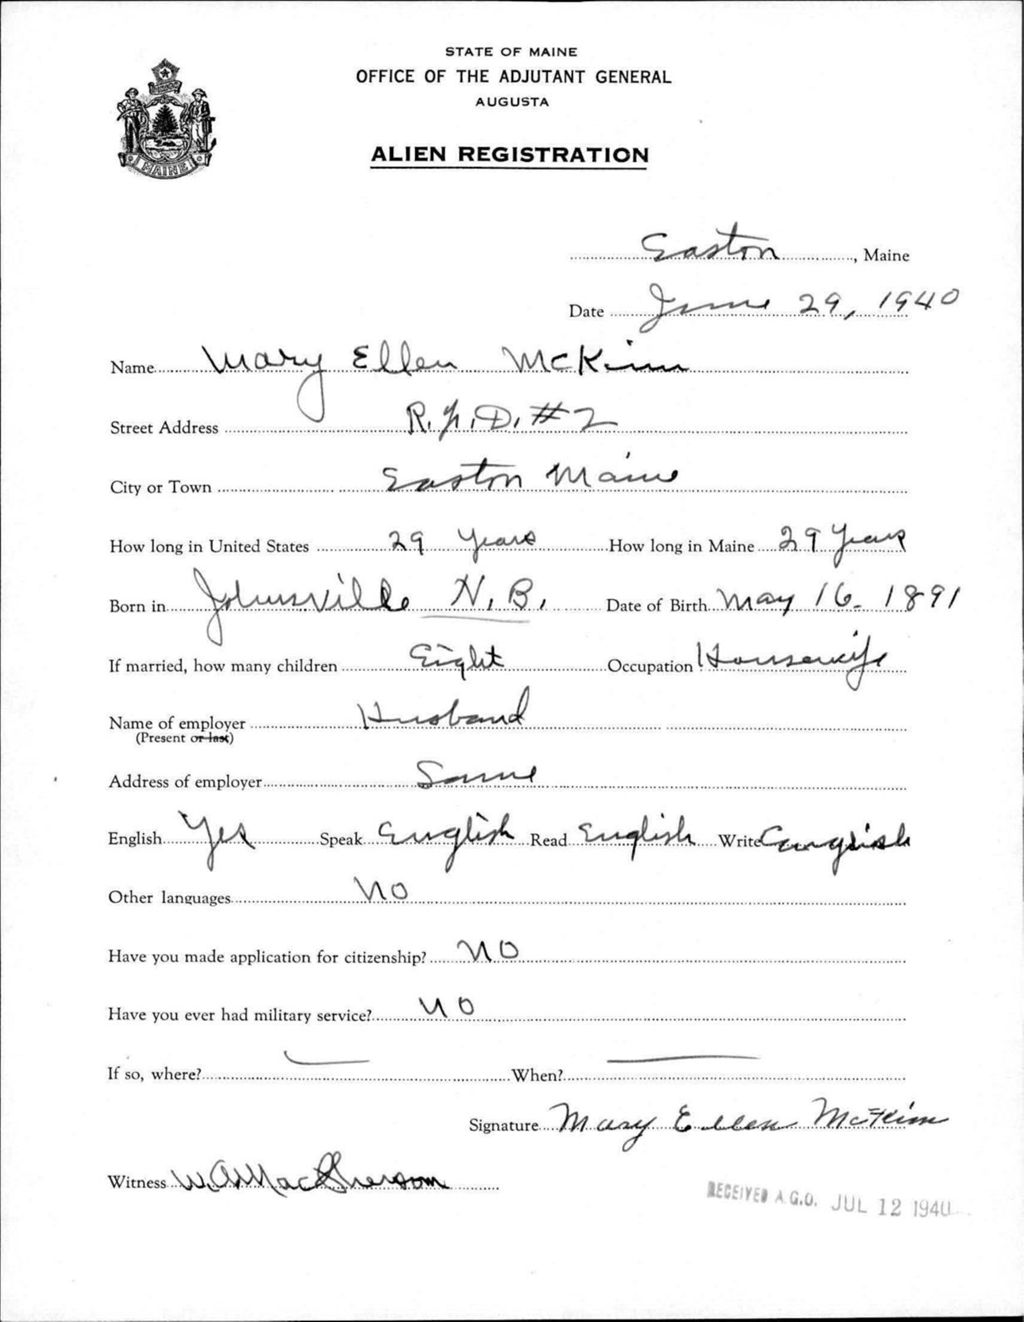 STATE OF MAINE
OFFICE OF THE ADJUTANT GENERAL
AUGUSTA
ALIEN REGISTRATION
MAINE
Easton, Maine
Date June 29, 1940
Name Mary Ellen McKim
Street Address R.F.D. #2
City or Town Easton Maine
How long in United States 29 years How long in Maine 29 years
Born in Johnsville N.B. Date of Birth May 16. 1891
If married, how many children Eight Occupation Housewife
Name of employer Husband
(Present or last)
Address of employer Same
English Yes Speak English Read English Write English
Other languages No
Have you made application for citizenship? No
Have you ever had military service? No
If so, where? When?
Signature Mary Ellen McKim
Witness W.A. MacPherson
RECEIVED A.G.O. JUL 12 1940